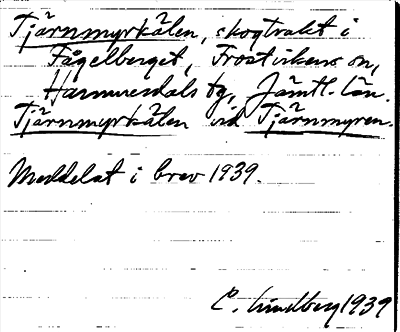 Tjärnmyrkälen, skogtrakt i
Fågelberget, Frostvikens sn,
Hammerdals tg, Jämtl. län.
Tjärnmyrkälen vid Tjärnmyren.
Meddelat i brev 1939.
C. Lindberg 1939